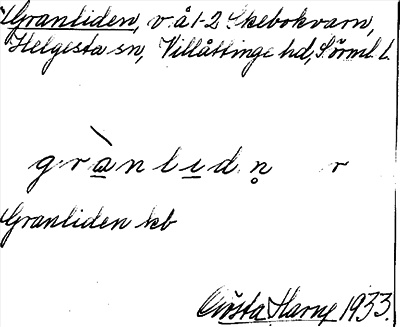 Granliden, v. å 1-2 Skebokvarn,
Helgesta sn, Villåttinge hd, Sörml. l.
grànlıdn̥ r
Granliden kb
Gösta Harne 1933.